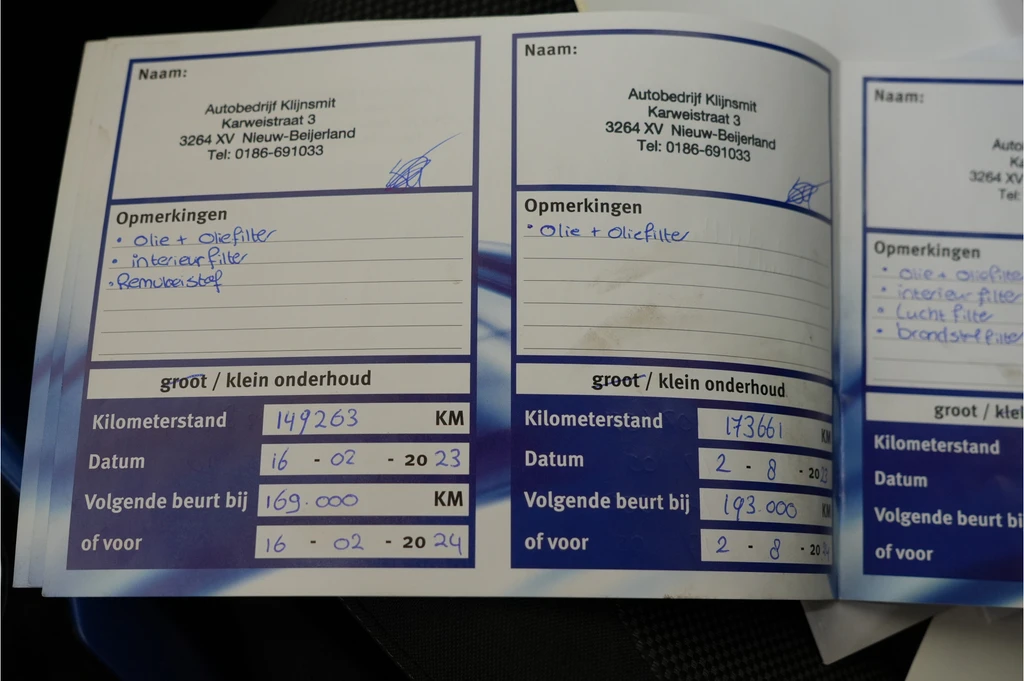 Naam:
Autobedrijf Klijnsmit
Karweistraat 3
3264 XV Nieuw-Beijerland
Tel: 0186-691033
Opmerkingen
• Olie + Oliefilter
• interieurfilter
• Remvloeistof
groot / klein onderhoud
Kilometerstand 149263 KM
Datum 16 - 02 - 20 23
Volgende beurt bij 169.000 KM
of voor 16 - 02 - 20 24
Naam:
Autobedrijf Klijnsmit
Karweistraat 3
3264 XV Nieuw-Beijerland
Tel: 0186-691033
Opmerkingen
• Olie + Oliefilter
groot / klein onderhoud
Kilometerstand 173661 KM
Datum 2 - 8 - 20
Volgende beurt bij 193.000 KM
of voor 2 - 8 - 20
Naam:
Auto
3264 XV
Tel:
Opmerkingen
• olie + oliefilter
• interieur filter
• Lucht filter
• brandstoffilter
groot / klei
Kilometerstand
Datum
Volgende beurt bi
of voor